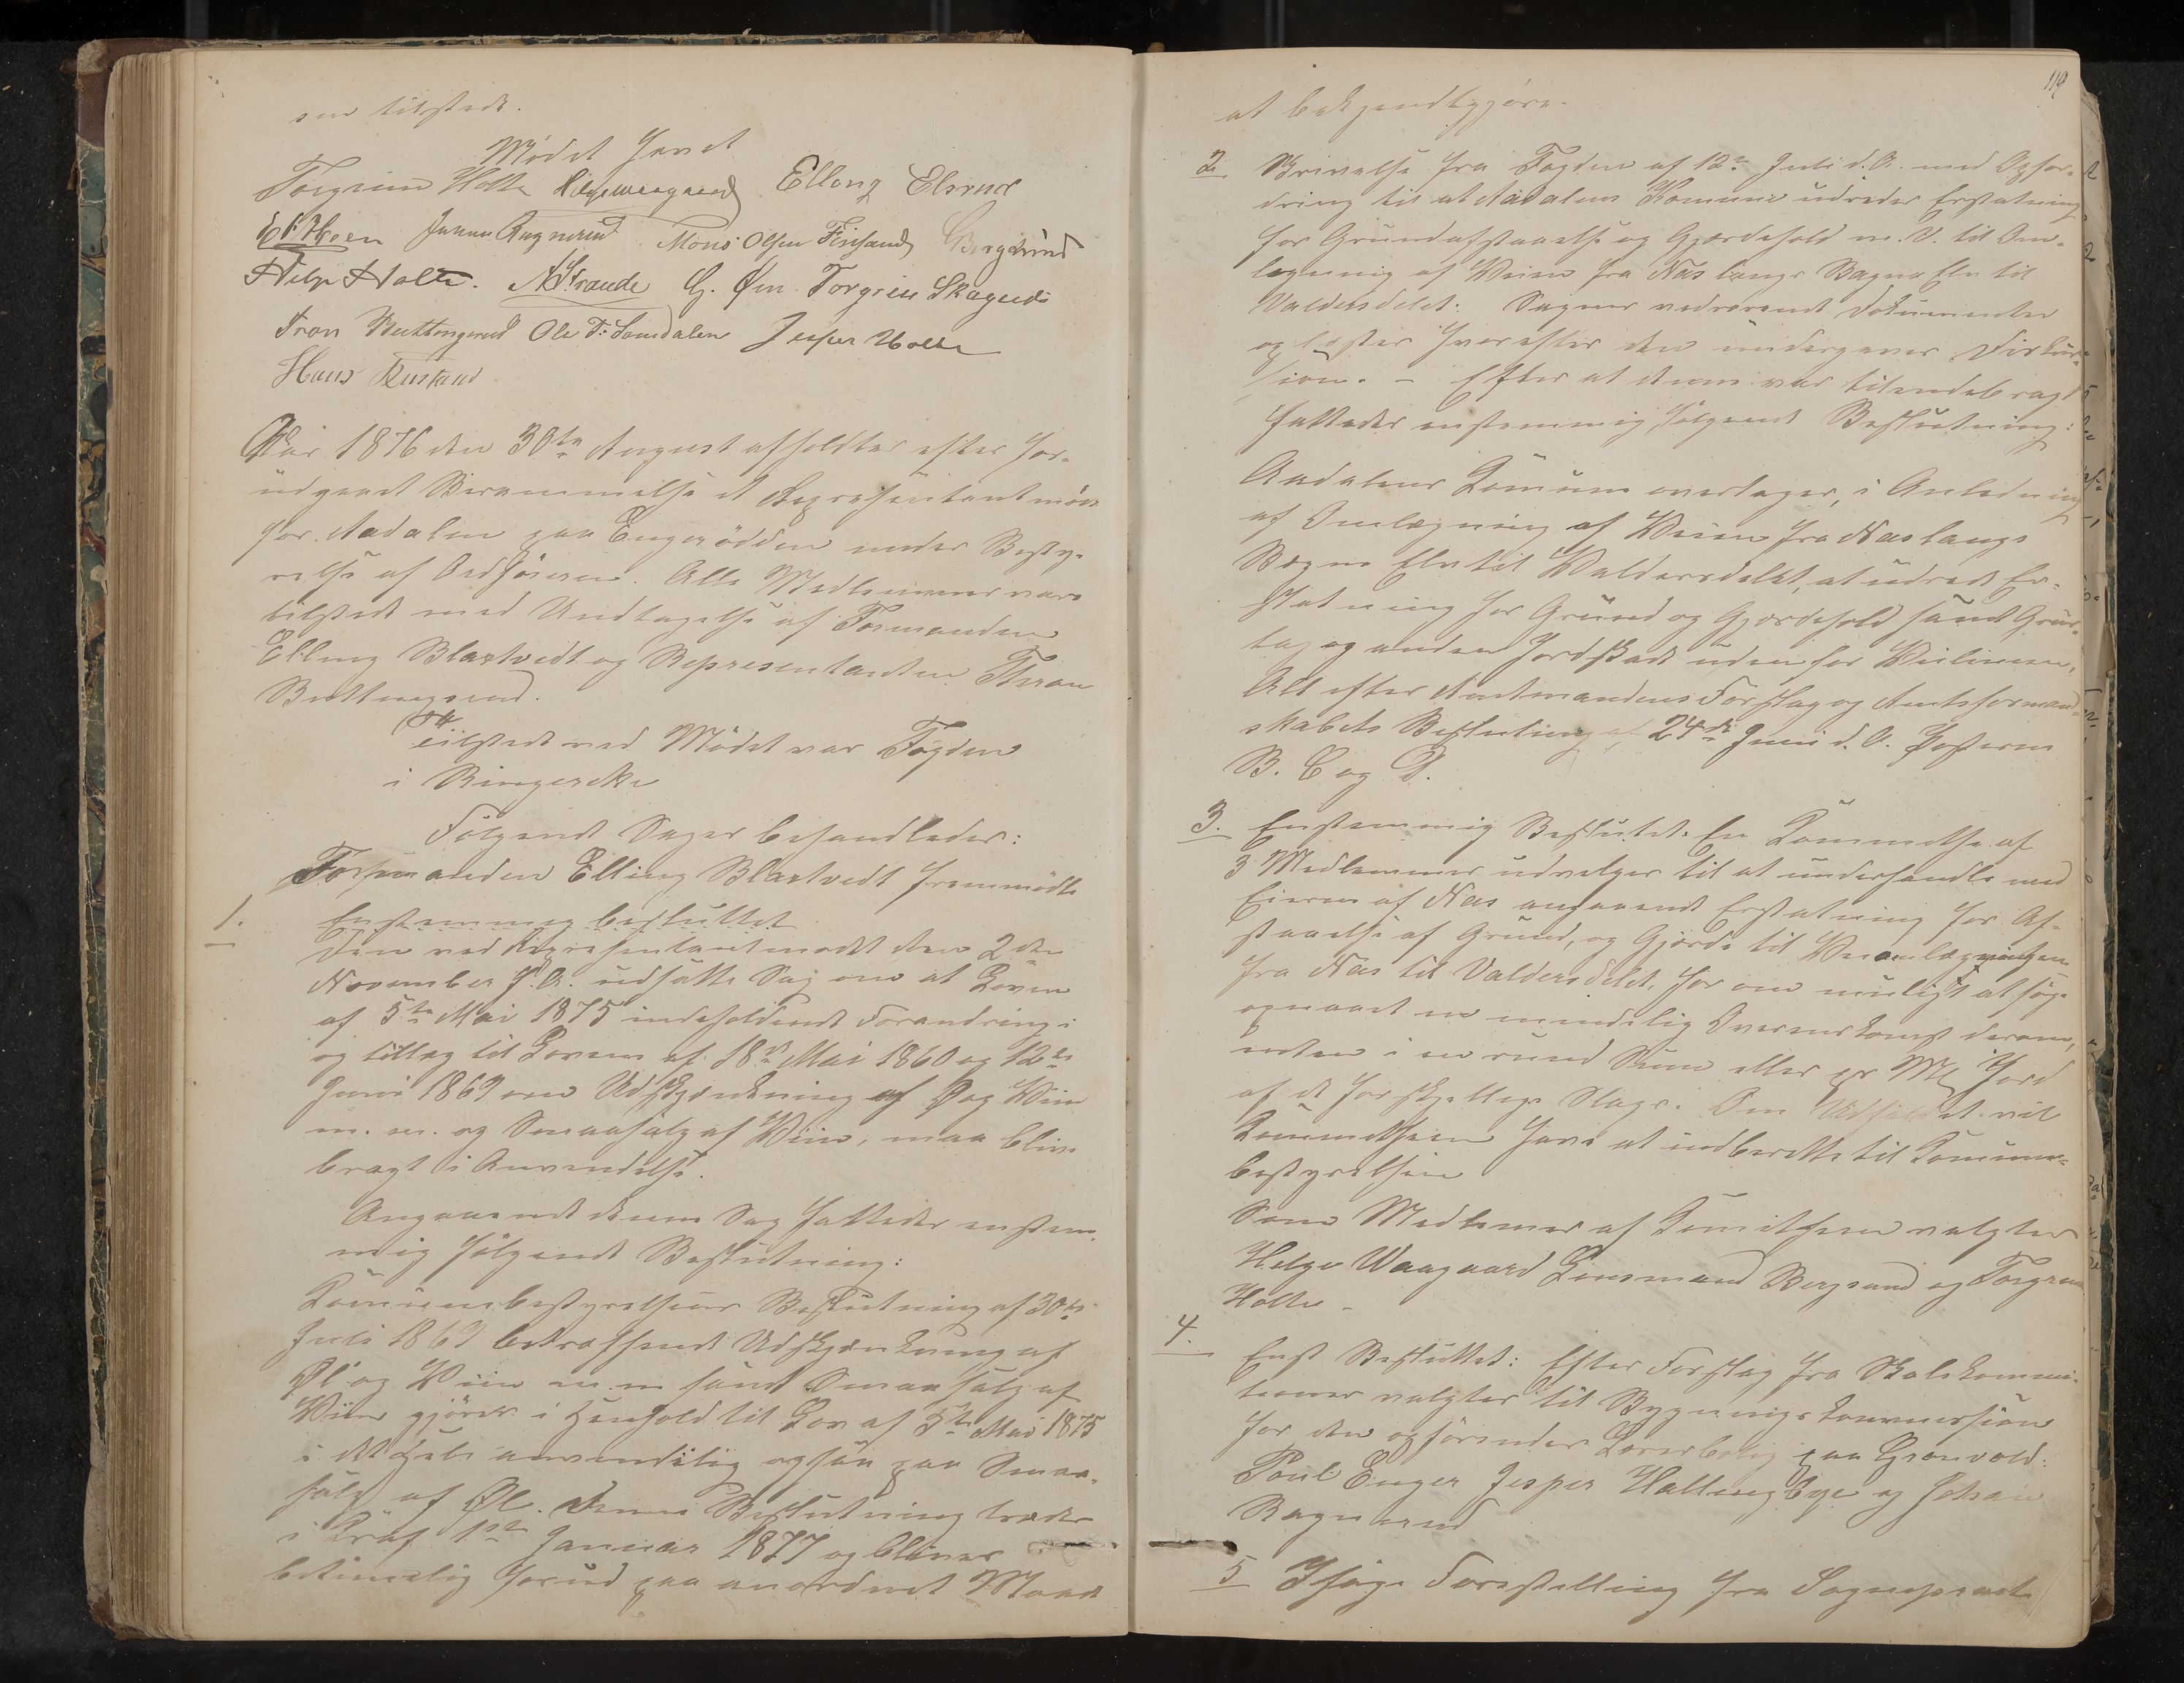 som tilstede.
Mødet hævet
Torgrim Holte Helge Waagaard Elling Elsrud
E. P. Heen Johan Ragnerud Mons Olsen Finsand Bergsund
Helge Holte. A. Strande G. Øen Torgrim Skagnæs
Iron Buttingsrud Ole T. Somdalen Jesper Holte
Hans Rustand
Aar 1876 den 30te August afholdtes efter for-
udgaaet Berammelse et Repræsentantmøde
for Aadalen paa Engerodden under Besty-
relse af Ordføreren. Alle Medlemmer vare
tilstede med Undtagelse af Formanden
Elling Blaktvedt og Representanten Thron
Buttingsrud.
Tilstede ved Mødet var Fogden
i Ringerike
Følgende Sager behandledes:
Formanden Elling Blaktvedt fremmødte
1. Enstemmig besluttet
Den ved Repræsentantmødet den 2den
November f. A. udsatte Sag om at Loven
af 5te Mai 1875 indeholdende Forandring i
og tillæg til Lovene af 18de Mai 1860 og 12te
Juni 1869 om Udskjænkning af Øl og Viin
m. m. og Smaasalg af Viin, maa blive
bragt i Anvendelse.
Angaaende denne Sag fattedes enstem-
mig følgende Beslutning:
Communebestyrelsens Beslutning af 30te
Juli 1869 betræffende Udskjænkning af
Øl og Viin m. m. samt Smaasalg af
Viin gjøres i Henhold til Lov af 5te Mai 1875
i det Hele anvendelig ogsaa paa Smaa-
salg af Øl. Denne Beslutning træder
i Kraft 1ste Januar 1877 og bliver
betimelig forud paa anordnet Maade
119
at bekjendtgjøre.
2. Skrivelse fra Fogden af 12te Juli d. A. med Opfor-
dring til at Aadalens Komune udreder Erstatning
for Grundafstaaelse og Gjærdehold m. V. til Om-
lægning af Veien fra Næs langs Bægna Elv til
Valdersdelet. Sagens vedrørende Dokumenter
oplæstes hvorefter den undergaves Diskus-
sion. - Efter at denne var tilendebragt
fattedes enstemmig følgende Beslutning:
Aadalens Komune overtager, i Anledning
af Omlægning af Veien fra Næs langs
Bægna Elv til Valdersdelet, at udrede Er-
statning for Grund og Gjærdehold samt Grus-
tag og anden Jordskade udenfor Veilinien,
Alt efter Amtmandens Forslag og Amtsformand-
skabets Beslutning af 24de Juni d. A. Posterne
B. C og D.
3. Enstemmig Besluttet. En Kommite af
3 Medlemmer udvælges til at underhandle med
Eieren af Næs angaaende Erstatning for Af-
staaelse af Grund, og Gjærde til Veiomlægningen
fra Næs til Valdersdelet, for om muligt at søge
opnaaet en mindelig Overenskomst derom,
enten i en rund Sum eller pr Ml Jord
af de forskjellige Slags. Om Udfaldet vil
Kommitheen have at indberette til Kommune-
bestyrelsen
Som Medlemer af Komitheen valgtes
Helge Waagaard Lensmand Bergsund og Torgrim
Holte -
4. Enst Besluttet: Efter Forslag fra Skolekommi-
tionen valgtes til Bygningskommission
for den opførendes Lærerbolig paa Grønvold:
Poul Enger Jesper Hallingbye og Johan
Ragnerud
5 Ifølge Forestilling fra Sognepræst